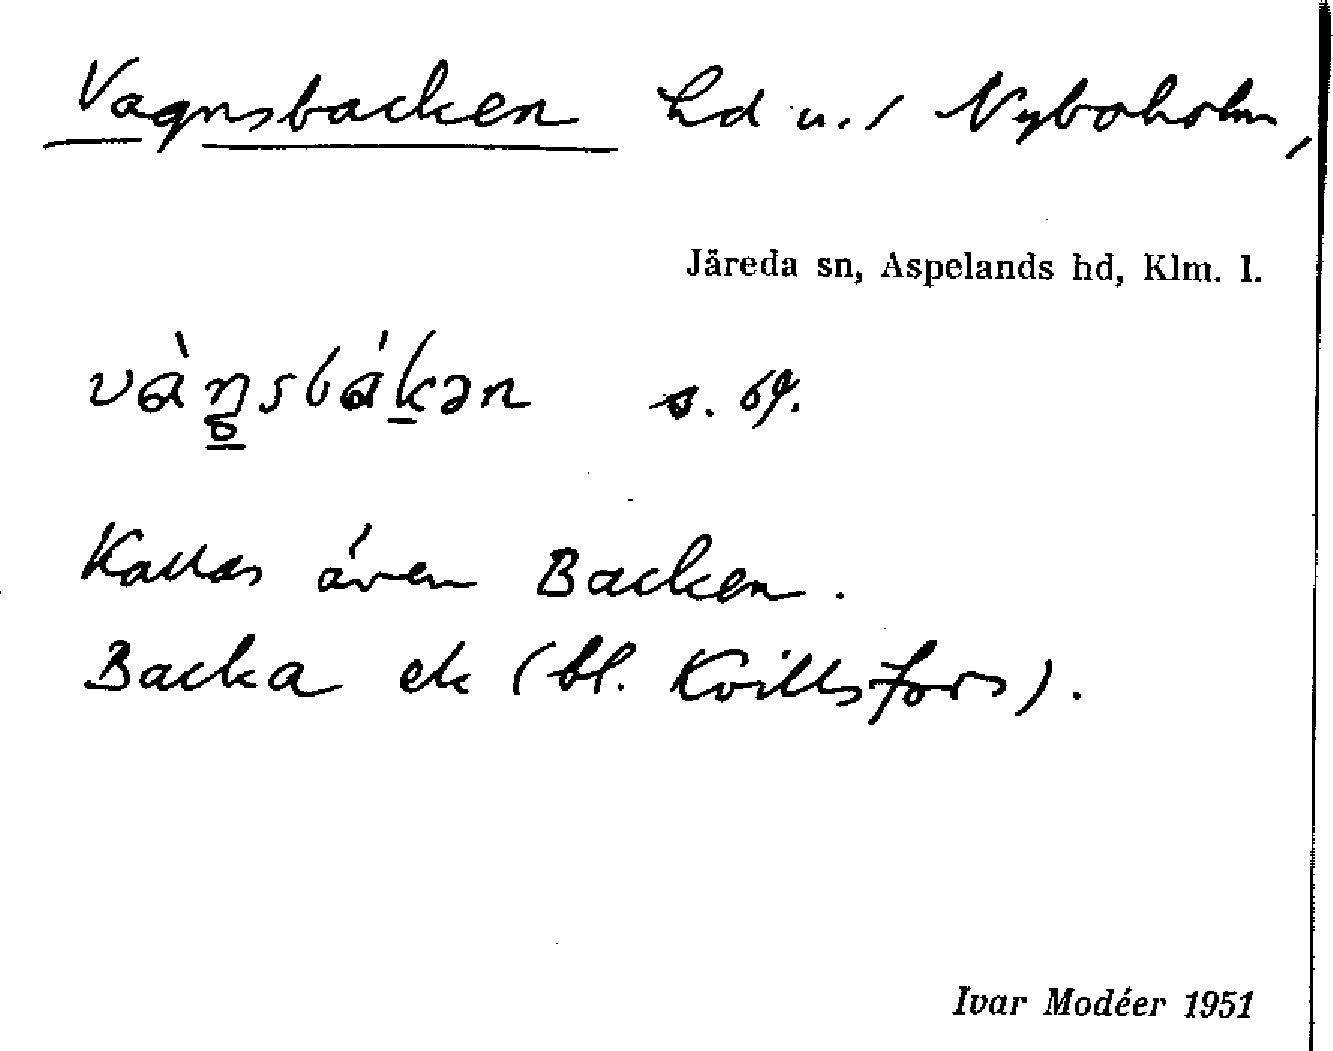 Vagnsbacken hd u./ Nyboholm,
Järeda sn, Aspelands hd, Klm. l.
vàŋsbákən s. 69.
Kallas även Backen.
Backa ek (bl. Kvillsfors).
Ivar Modéer 1951